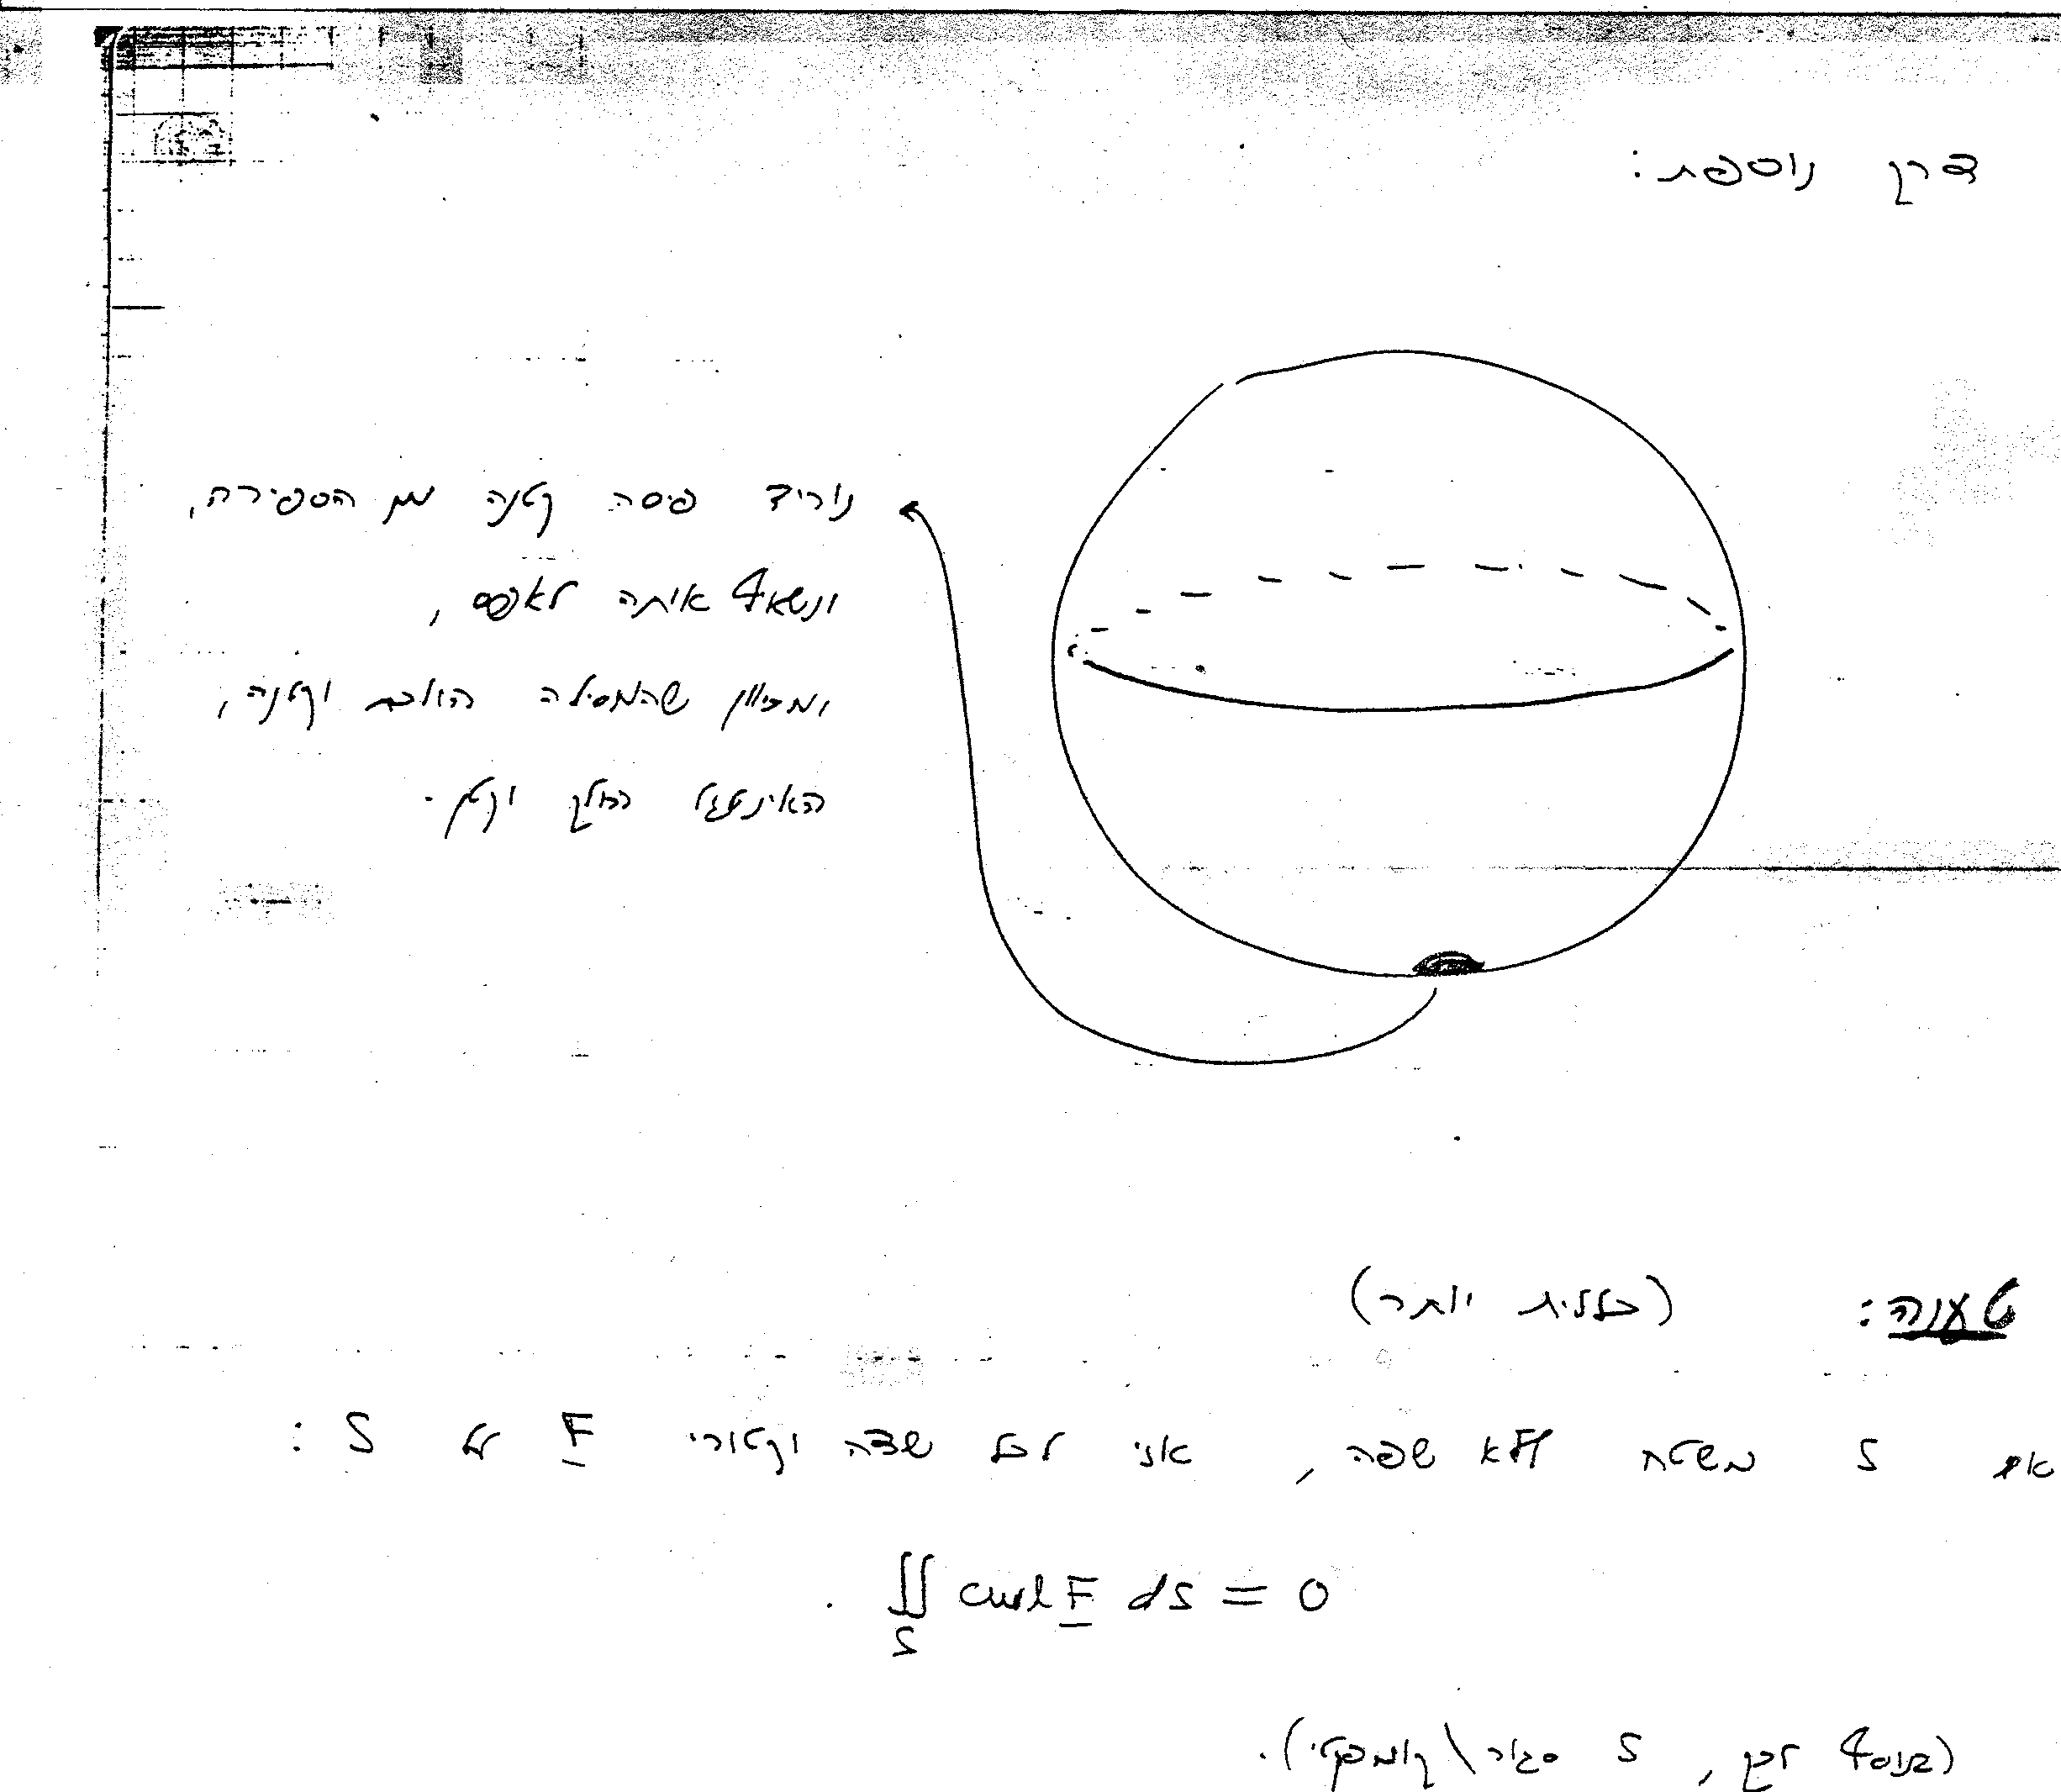 דרך נוספת:
נוריד פיסה קטנה מן הספירה,
ונשאף איתה לאפס,
ומכיוון שהמסילה הולכת וקטנה,
האינטגרל הולך וקטן.
טענה: (כללית יותר)
אם S משטח ללא שפה, אזי לכל שדה וקטורי F על S:
∬_S curl F dS = 0.
(בנוסף לכך, S סגור\קומפקטי).